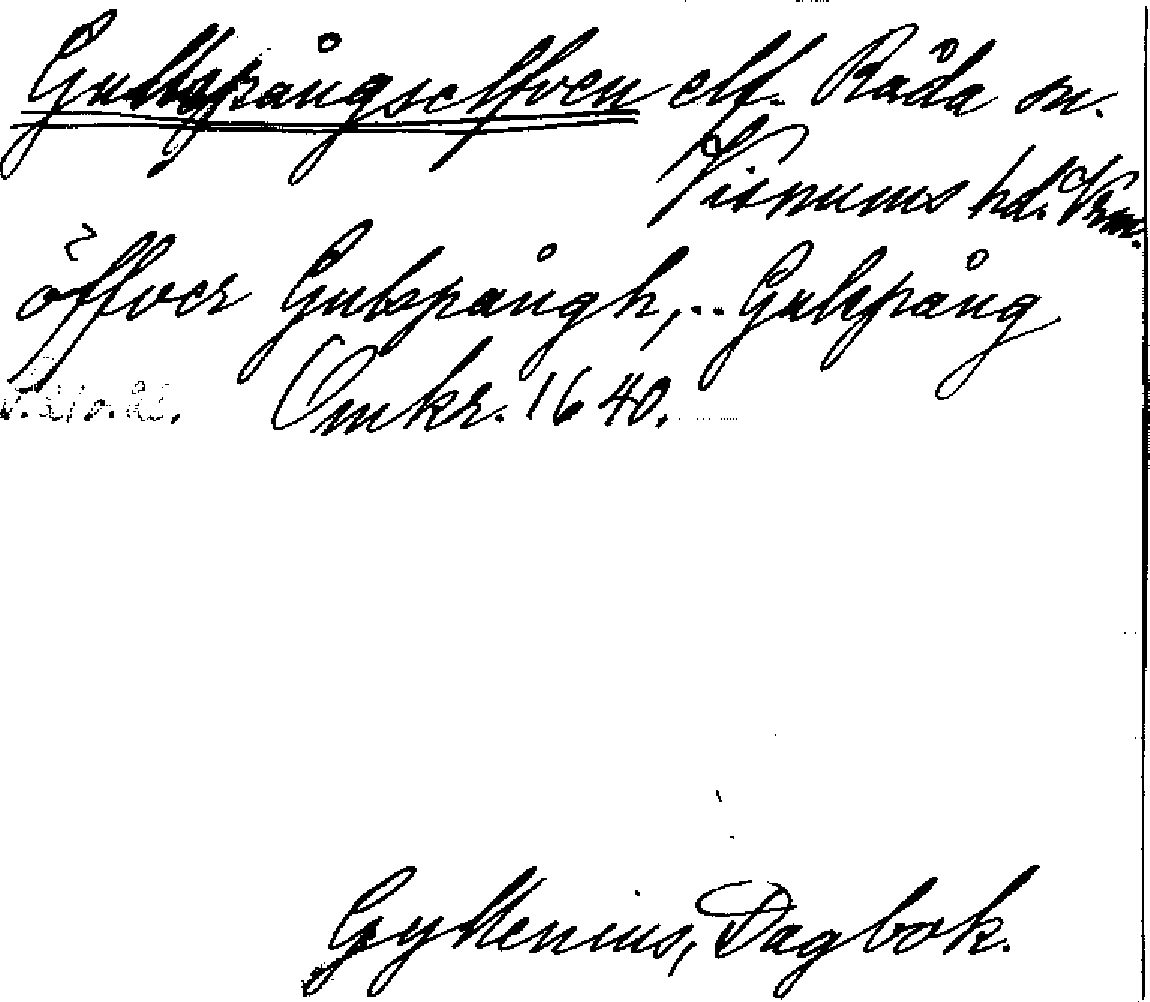 Gullspångselfven elf. Råda sn.
Visnums hd. Vrm.
öffver Gulspångh, .. Gulspång
Omkr. 1640.
Gyllenius, Dagbok.